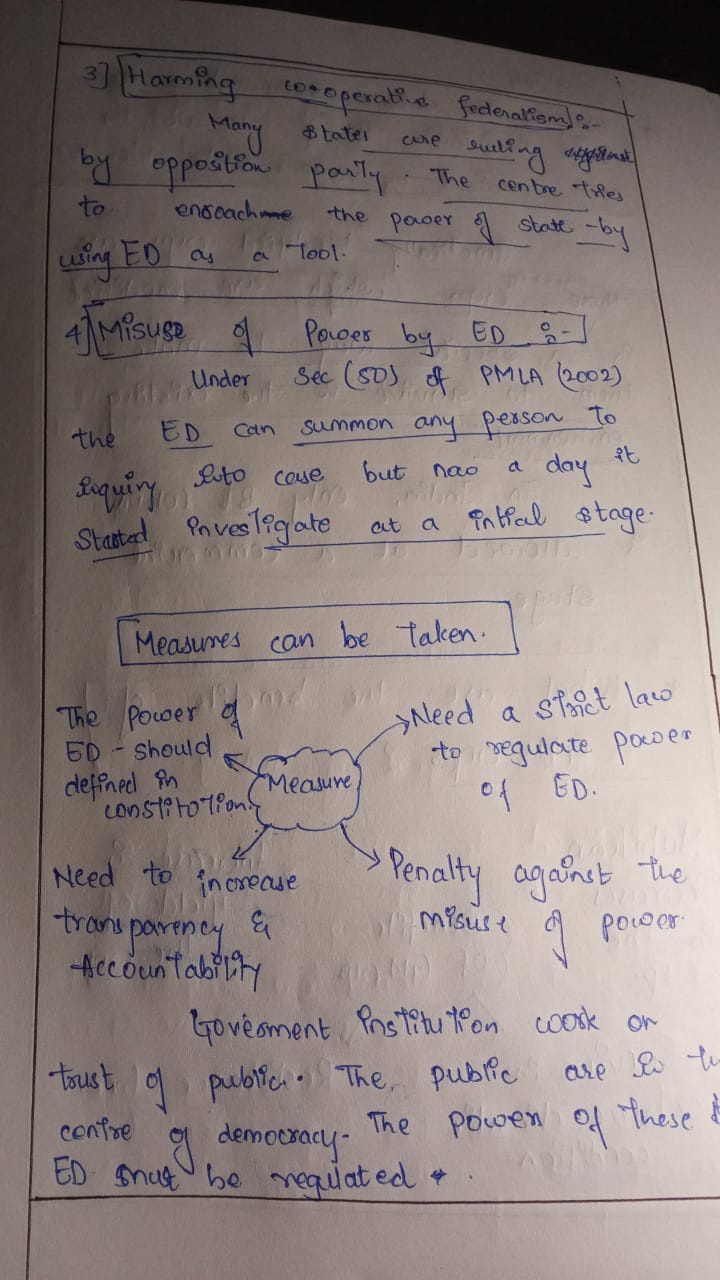 3] Harming co-operative federalism :-
Many states are ruling
by opposition party. The centre tries
to encroach the power of state - by
using ED as a Tool.
4] Misuse of Power by ED :-
Under Sec (50) of PMLA (2002)
the ED can summon any person to
inquiry into case but nao a day it
Started investigate at a intial stage.
Measures can be Taken.
The power of
ED - should
defined in
constitution.
Need a strict law
to regulate power
of ED.
Measure
Need to increase
transparency &
Accountability
Penalty against the
misuse of power.
Goverment institution work on
trust of public. The public are in
centre of democracy- The power of these
ED must be regulated.